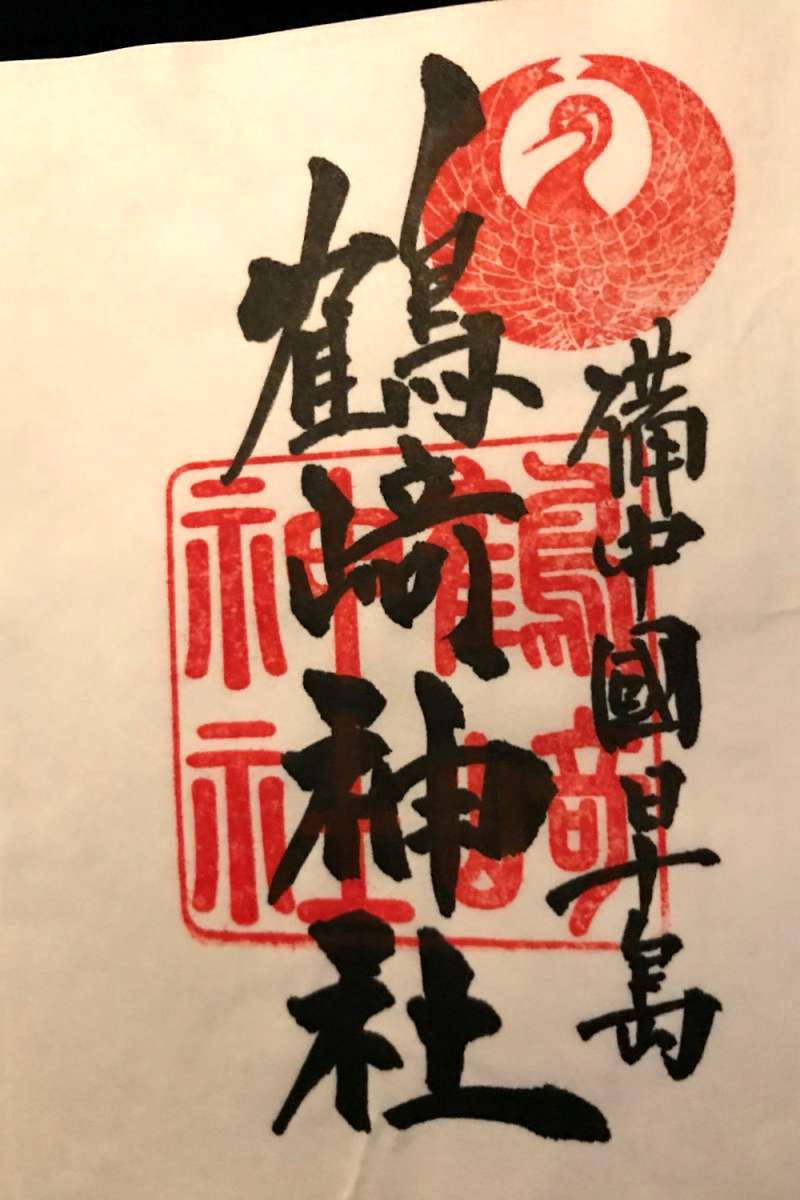 備中國早島
鶴﨑神社
鶴﨑
神社